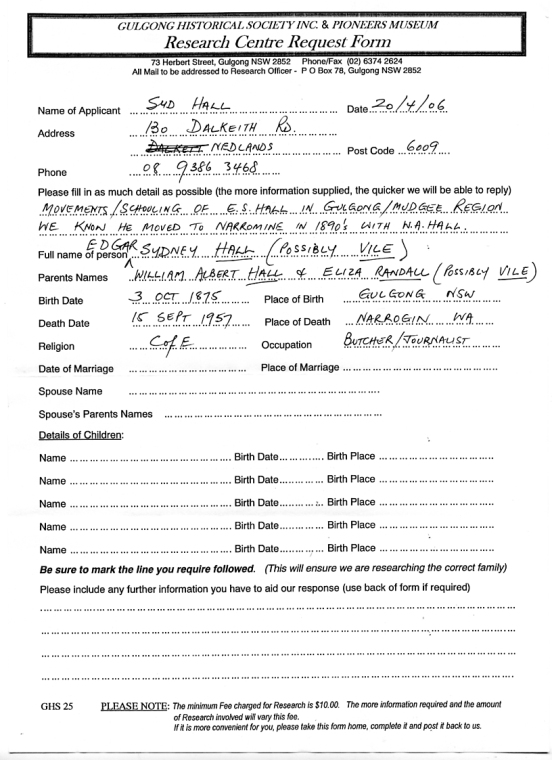 GULGONG HISTORICAL SOCIETY INC. & PIONEERS MUSEUM
Research Centre Request Form
73 Herbert Street, Gulgong NSW 2852 Phone/Fax (02) 6374 2624
All Mail to be addressed to Research Officer - P O Box 78, Gulgong NSW 2852
Name of Applicant SYD HALL Date 20/4/06
Address 130 DALKEITH RD.
DALKETT NEDLANDS Post Code 6009
Phone 08 9386 3468
Please fill in as much detail as possible (the more information supplied, the quicker we will be able to reply)
MOVEMENTS/SCHOOLING OF E.S. HALL IN GULGONG/MUDGEE REGION
WE KNOW HE MOVED TO NARROMINE IN 1890's WITH N.A. HALL.
Full name of person EDGAR SYDNEY HALL (POSSIBLY VILE)
Parents Names WILLIAM ALBERT HALL & ELIZA RANDALL (POSSIBLY VILE)
Birth Date 3 OCT 1875 Place of Birth GULGONG NSW
Death Date 15 SEPT 1957 Place of Death NARROGIN WA
Religion C of E Occupation BUTCHER/JOURNALIST
Date of Marriage Place of Marriage
Spouse Name
Spouse's Parents Names
Details of Children:
Name Birth Date Birth Place
Name Birth Date Birth Place
Name Birth Date Birth Place
Name Birth Date Birth Place
Name Birth Date Birth Place
Be sure to mark the line you require followed. (This will ensure we are researching the correct family)
Please include any further information you have to aid our response (use back of form if required)
GHS 25 PLEASE NOTE: The minimum Fee charged for Research is $10.00. The more information required and the amount
of Research involved will vary this fee.
If it is more convenient for you, please take this form home, complete it and post it back to us.